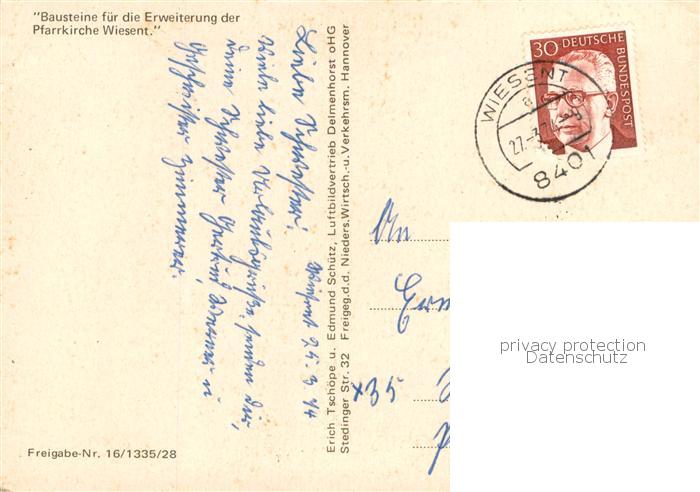 "Bausteine für die Erweiterung der
Pfarrkirche Wiesent."
Liebe Schwester!
Wiesent 25.3.74
Viele liebe Urlaubsgrüße senden dir,
deine Schwester Werner u
Geschwister Zimmerer.
Erich Tschöpe u. Edmund Schütz, Luftbildvertrieb Delmenhorst oHG
Stedinger Str. 32 Freigeg.d.d. Nieders.Wirtsch.-u.Verkehrsm. Hannover
30 DEUTSCHE BUNDESPOST
WIESENT
a
27.-3.74
8401
An
x35
privacy protection
Datenschutz
Freigabe-Nr. 16/1335/28